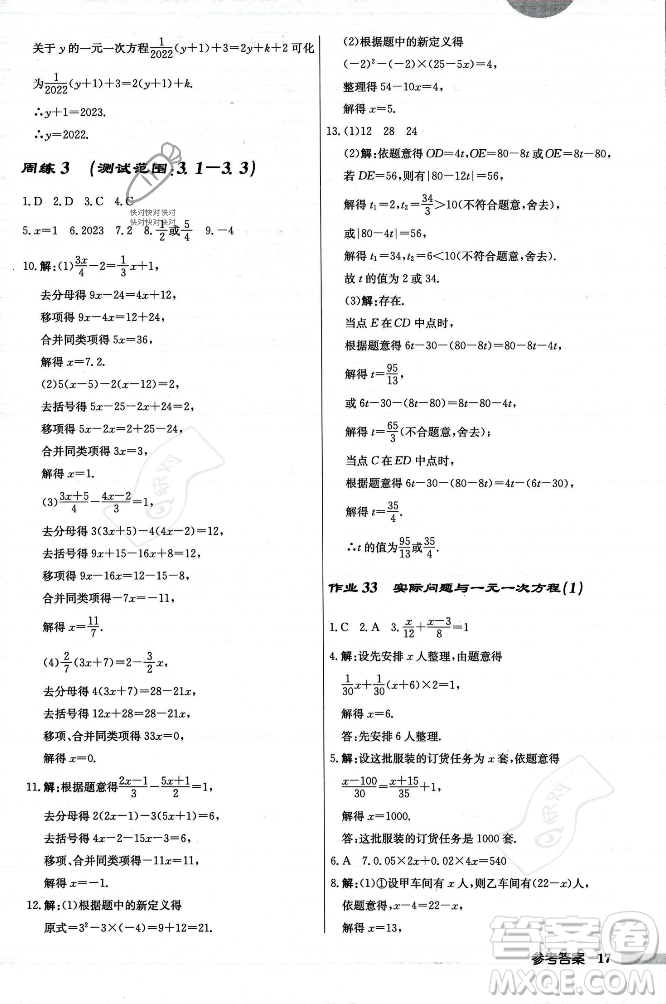 关于y的一元一次方程1/2022(y+1)+3=2y+k+2可化
为1/2022(y+1)+3=2(y+1)+k.
∴y+1=2023.
∴y=2022.
周练3 (测试范围:3.1—3.3)
1.D 2.D 3.C 4.C
5.x=1 6.2023 7.2 8.1/2或5/4 9.-4
10.解:(1)3x/4-2=1/3x+1,
去分母得9x-24=4x+12,
移项得9x-4x=12+24,
合并同类项得5x=36,
解得x=7.2.
(2)5(x-5)-2(x-12)=2,
去括号得5x-25-2x+24=2,
移项得5x-2x=2+25-24,
合并同类项得3x=3,
解得x=1.
(3)(3x+5)/4-(4x-2)/3=1,
去分母得3(3x+5)-4(4x-2)=12,
去括号得9x+15-16x+8=12,
移项得9x-16x=12-15-8,
合并同类项得-7x=-11,
解得x=11/7.
(4)2/7(3x+7)=2-3/2x,
去分母得4(3x+7)=28-21x,
去括号得12x+28=28-21x,
移项、合并同类项得33x=0,
解得x=0.
11.解:根据题意得(2x-1)/3-(5x+1)/6=1,
去分母得2(2x-1)-(5x+1)=6,
去括号得4x-2-5x-1=6,
移项、合并同类项得-x=9,
解得x=-9.
12.解:(1)根据题中的新定义得
原式=3²-3×(-4)=9+12=21.
(2)根据题中的新定义得
(-2)²-(-2)×(25-5x)=4,
整理得54-10x=4,
解得x=5.
13.(1)12 28 24
(2)解:依题意得OD=4t,OE=80-8t
若DE=|80-8t-4t|,则有|80-12t|=|80-8t|,
解得t₁=2,t₂=34/3>10(不符合题意,舍去),
或|80-12t|=
解得t₁=34,t₂=6<10(不符合题意,舍去).
故t的值为2或34.
(3)解:存在.
当点E在CD中点时,
根据题意得6t-30-(80-8t)=35,
解得t=95/13,
或6t-30-(80-8t)=-40,
解得t=65/3(不合题意,舍去);
当点C在ED中点时,
根据题意得6t-30-(80-8t)=40-4t,
解得t=35/4.
∴t的值为95/13或35/4.
作业33 实际问题与一元一次方程(1)
1.C 2.A 3.x/12+(x-3)/8=1
4.解:设先安排x人整理,由题意得
1/30x+1/30(x+6)×2=1,
解得x=6.
答:先安排6人整理.
5.解:设这批服装的订货任务为x套,依题意得
(x-100)/30=(x+15)/35,
解得x=1000.
答:这批服装的订货任务是1000套.
6.A 7.0.05×2x+0.02×4x=540
8.解:(1)①设甲车间有x人,则乙车间有(22-x)人,
依题意得,
解得x=13,
参考答案 17
快对快对快对
快对快对快对
快对
答案圈
MXQE.COM